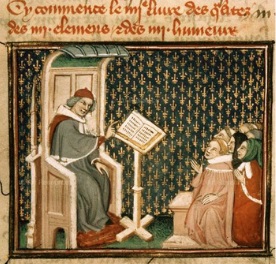 Cy commence le liure des q̃litez
des iiii. elemens ⁊ des iiii. humeurs